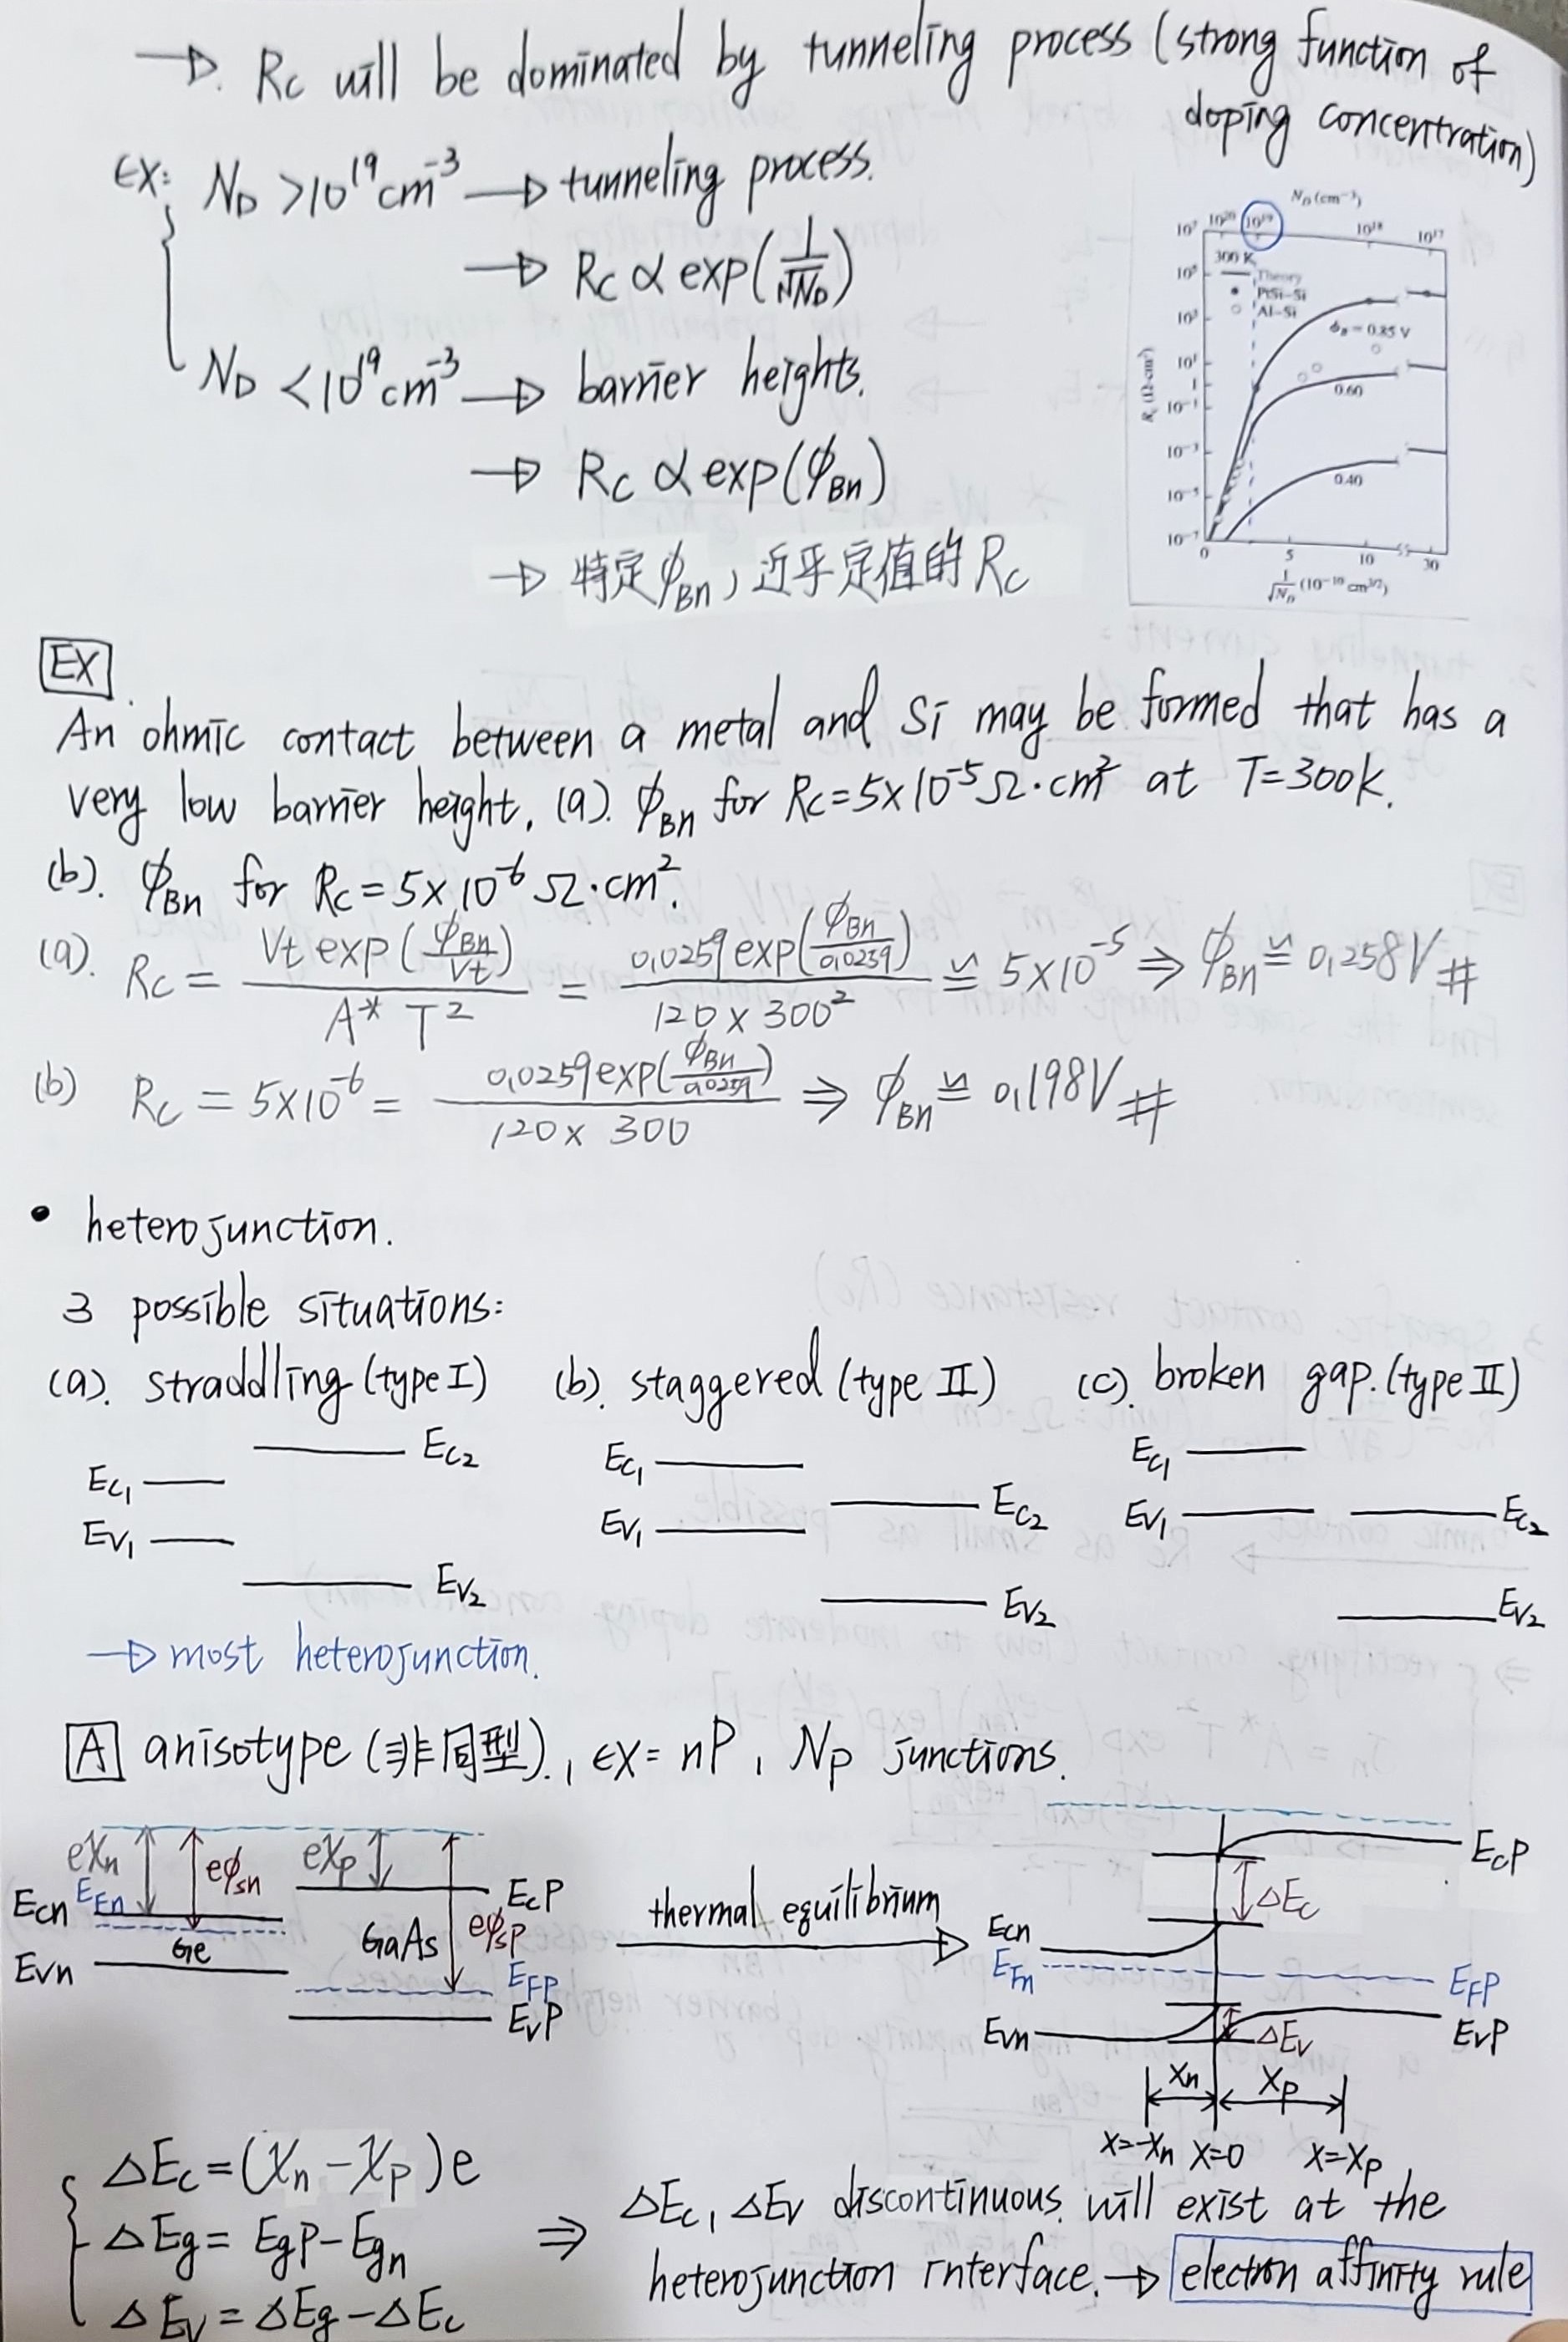 → Rc will be dominated by tunneling process (strong function of
doping concentration)
EX: N_D > 10^19 cm^-3 → tunneling process.
→ Rc ∝ exp(1/√N_D)
N_D < 10^19 cm^-3 → barrier heights.
→ Rc ∝ exp(ϕ_Bn)
→ 特定ϕ_Bn, 近乎定值的 Rc
N_D (cm^-3)
10^20 10^19 10^18 10^17
300 K
Theory
PtSi–Si
Al–Si
ϕ_B = 0.85 V
0.60
0.40
R_c (Ω-cm²)
10^7
10^5
10^3
10^1
1
10^-1
10^-3
10^-5
10^-7
0 5 10 30
1/√N_D (10^-10 cm^3/2)
EX
An ohmic contact between a metal and Si may be formed that has a
very low barrier height. (a). ϕ_Bn for Rc = 5×10^-5 Ω·cm² at T=300k.
(b). ϕ_Bn for Rc = 5×10^-6 Ω·cm².
(a). Rc = Vt exp(ϕ_Bn/Vt) / A* T² = 0.0259 exp(ϕ_Bn/0.0259) / 120 × 300² ≌ 5×10^-5 ⇒ ϕ_Bn ≌ 0.258V #
(b) Rc = 5×10^-6 = 0.0259 exp(ϕ_Bn/0.0259) / 120 × 300 ⇒ ϕ_Bn ≌ 0.198V #
• heterojunction.
3 possible situations:
(a). straddling (type I) (b). staggered (type II) (c). broken gap. (type II)
Ec1 Ec2 Ev1 Ev2
Ec1 Ec2 Ev1 Ev2
Ec1 Ev1 Ec2 Ev2
→ most heterojunction.
A anisotype (非同型)., ex = nP, Np junctions.
eχn eϕsn eχp eϕsP
Ecn EFn Evn Ge
GaAs EcP EFP EvP
thermal equilibrium
EcP ΔEc
Ecn EFn EFP
Evn ΔEv EvP
Xn Xp
X=-Xn X=0 X=Xp
ΔEc = (χn − χp)e
ΔEg = EgP − Egn
ΔEv = ΔEg − ΔEc
⇒ ΔEc, ΔEv discontinuous. will exist at the
heterojunction interface. → electron affinity rule